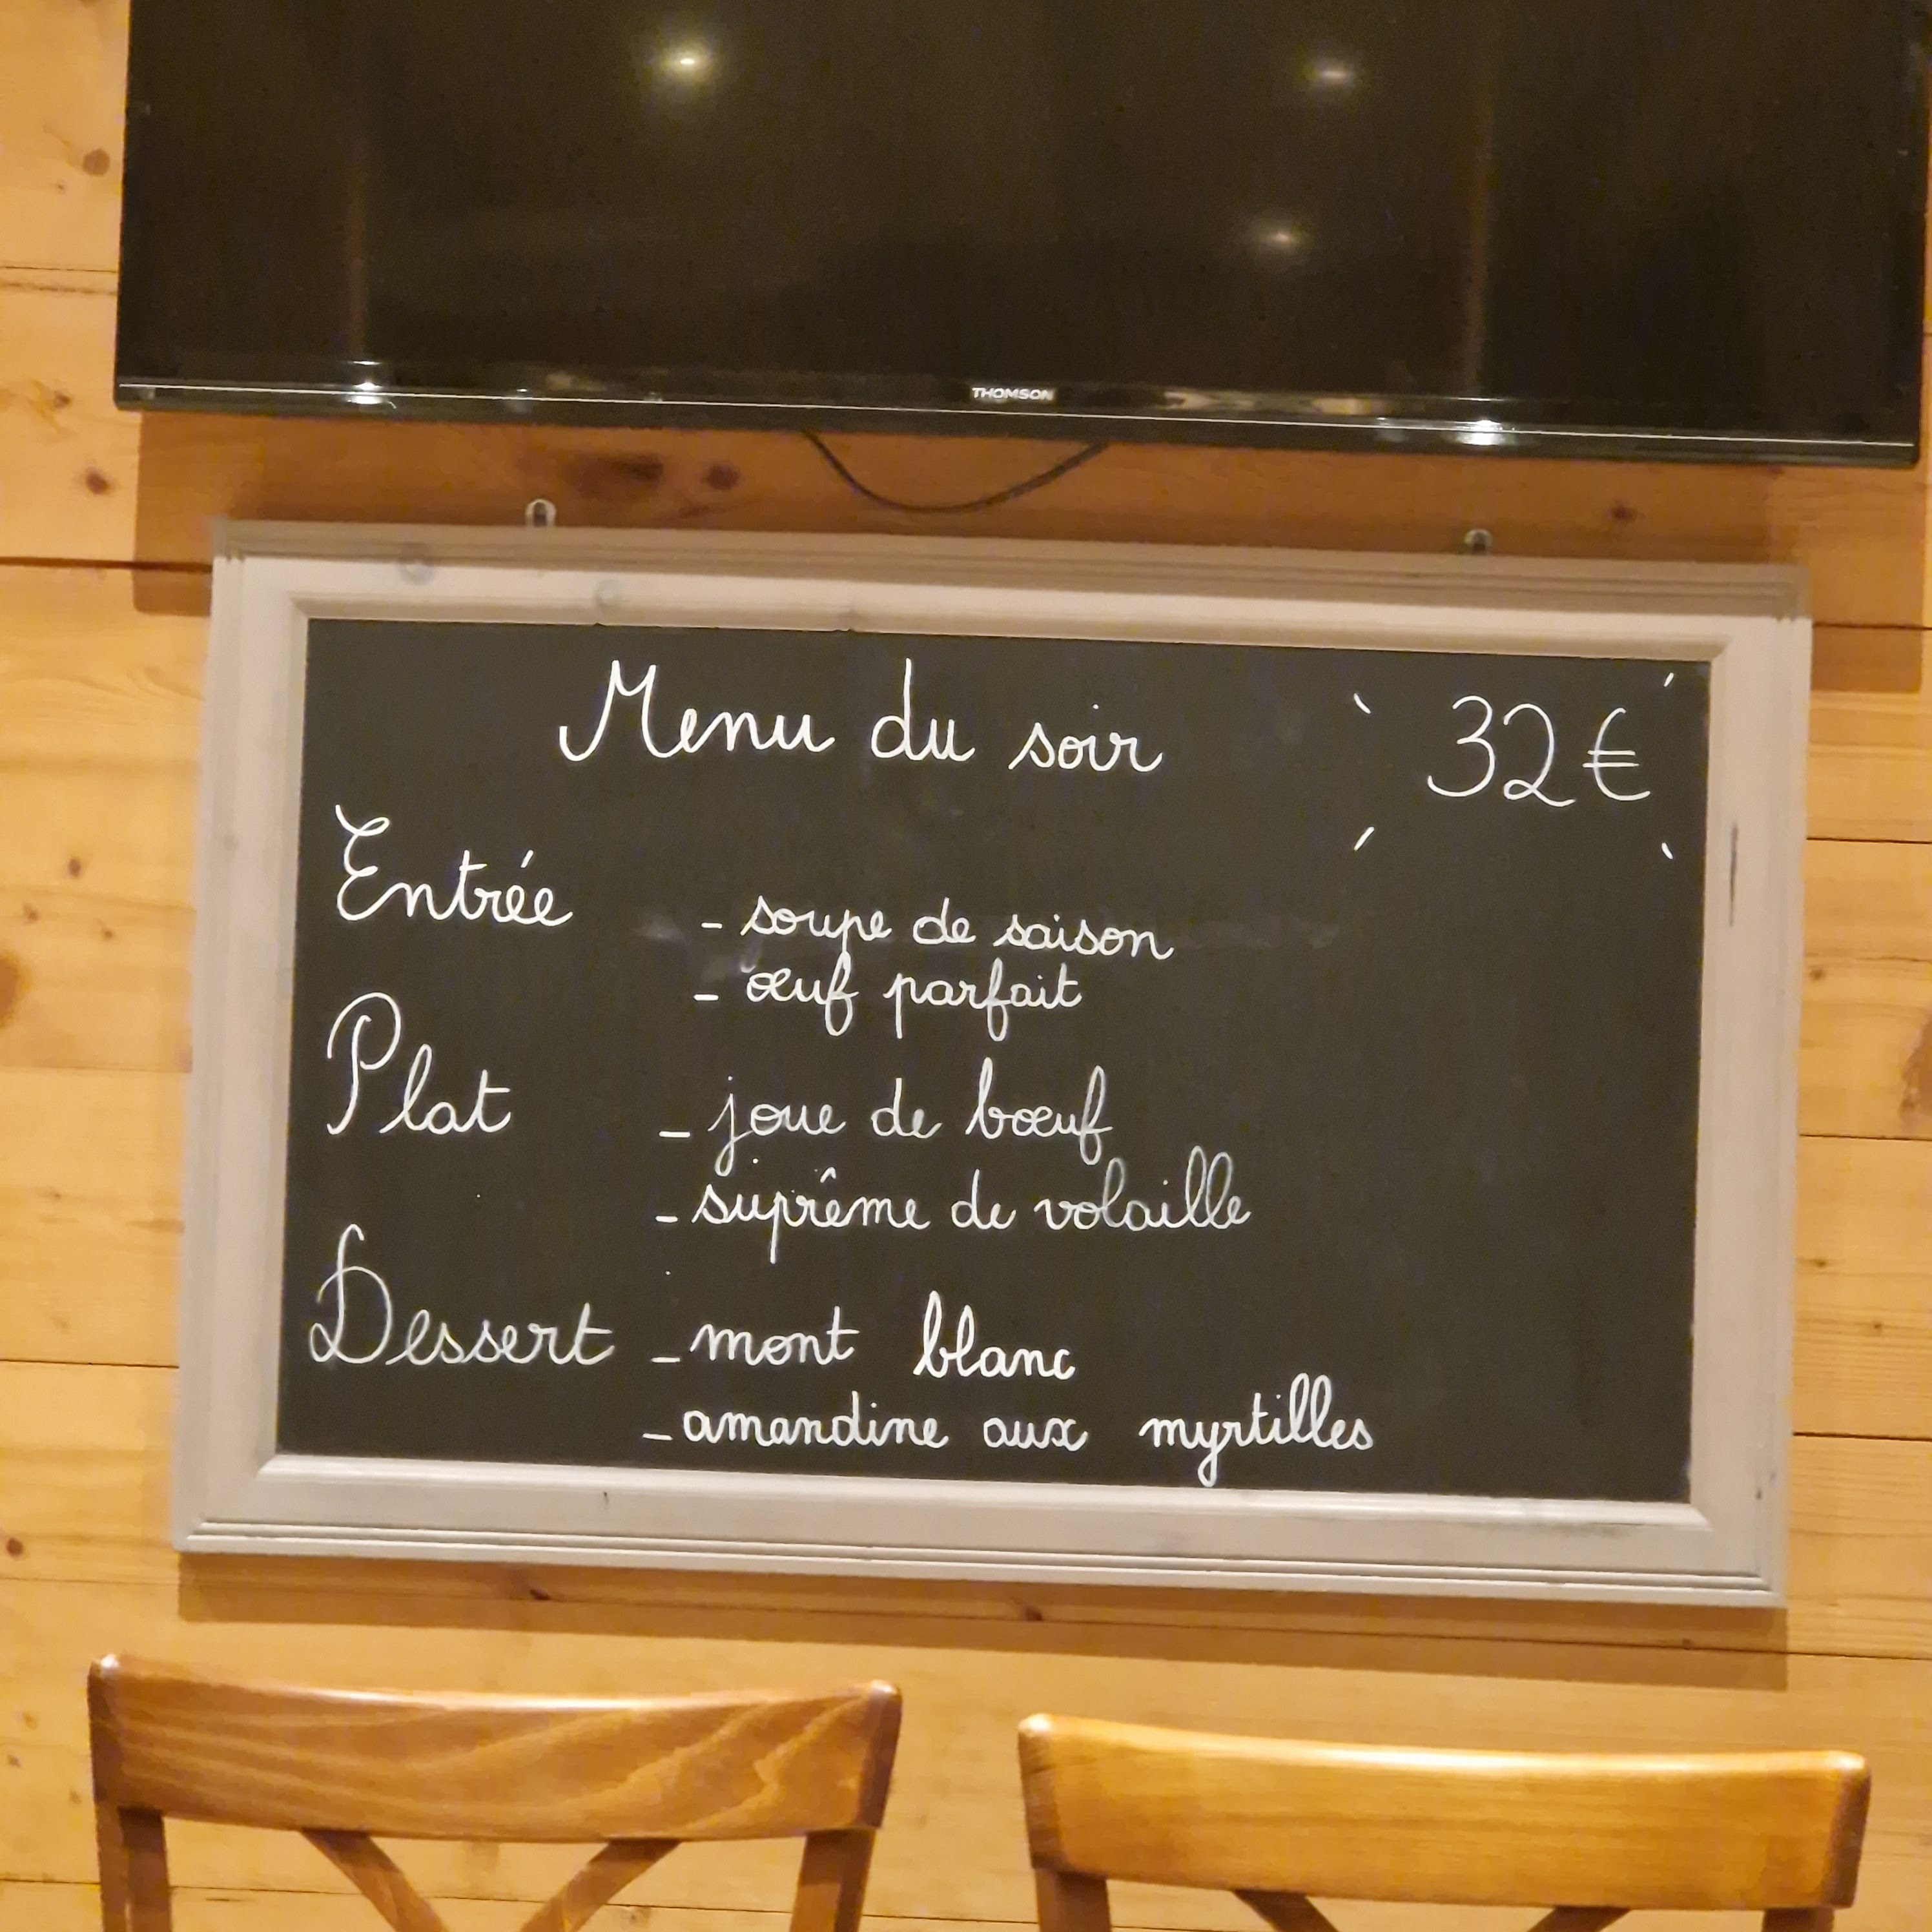 THOMSON
Menu du soir 32€
Entrée
- soupe de saison
- œuf parfait
Plat
- joue de bœuf
- suprême de volaille
Dessert - mont blanc
- amandine aux myrtilles